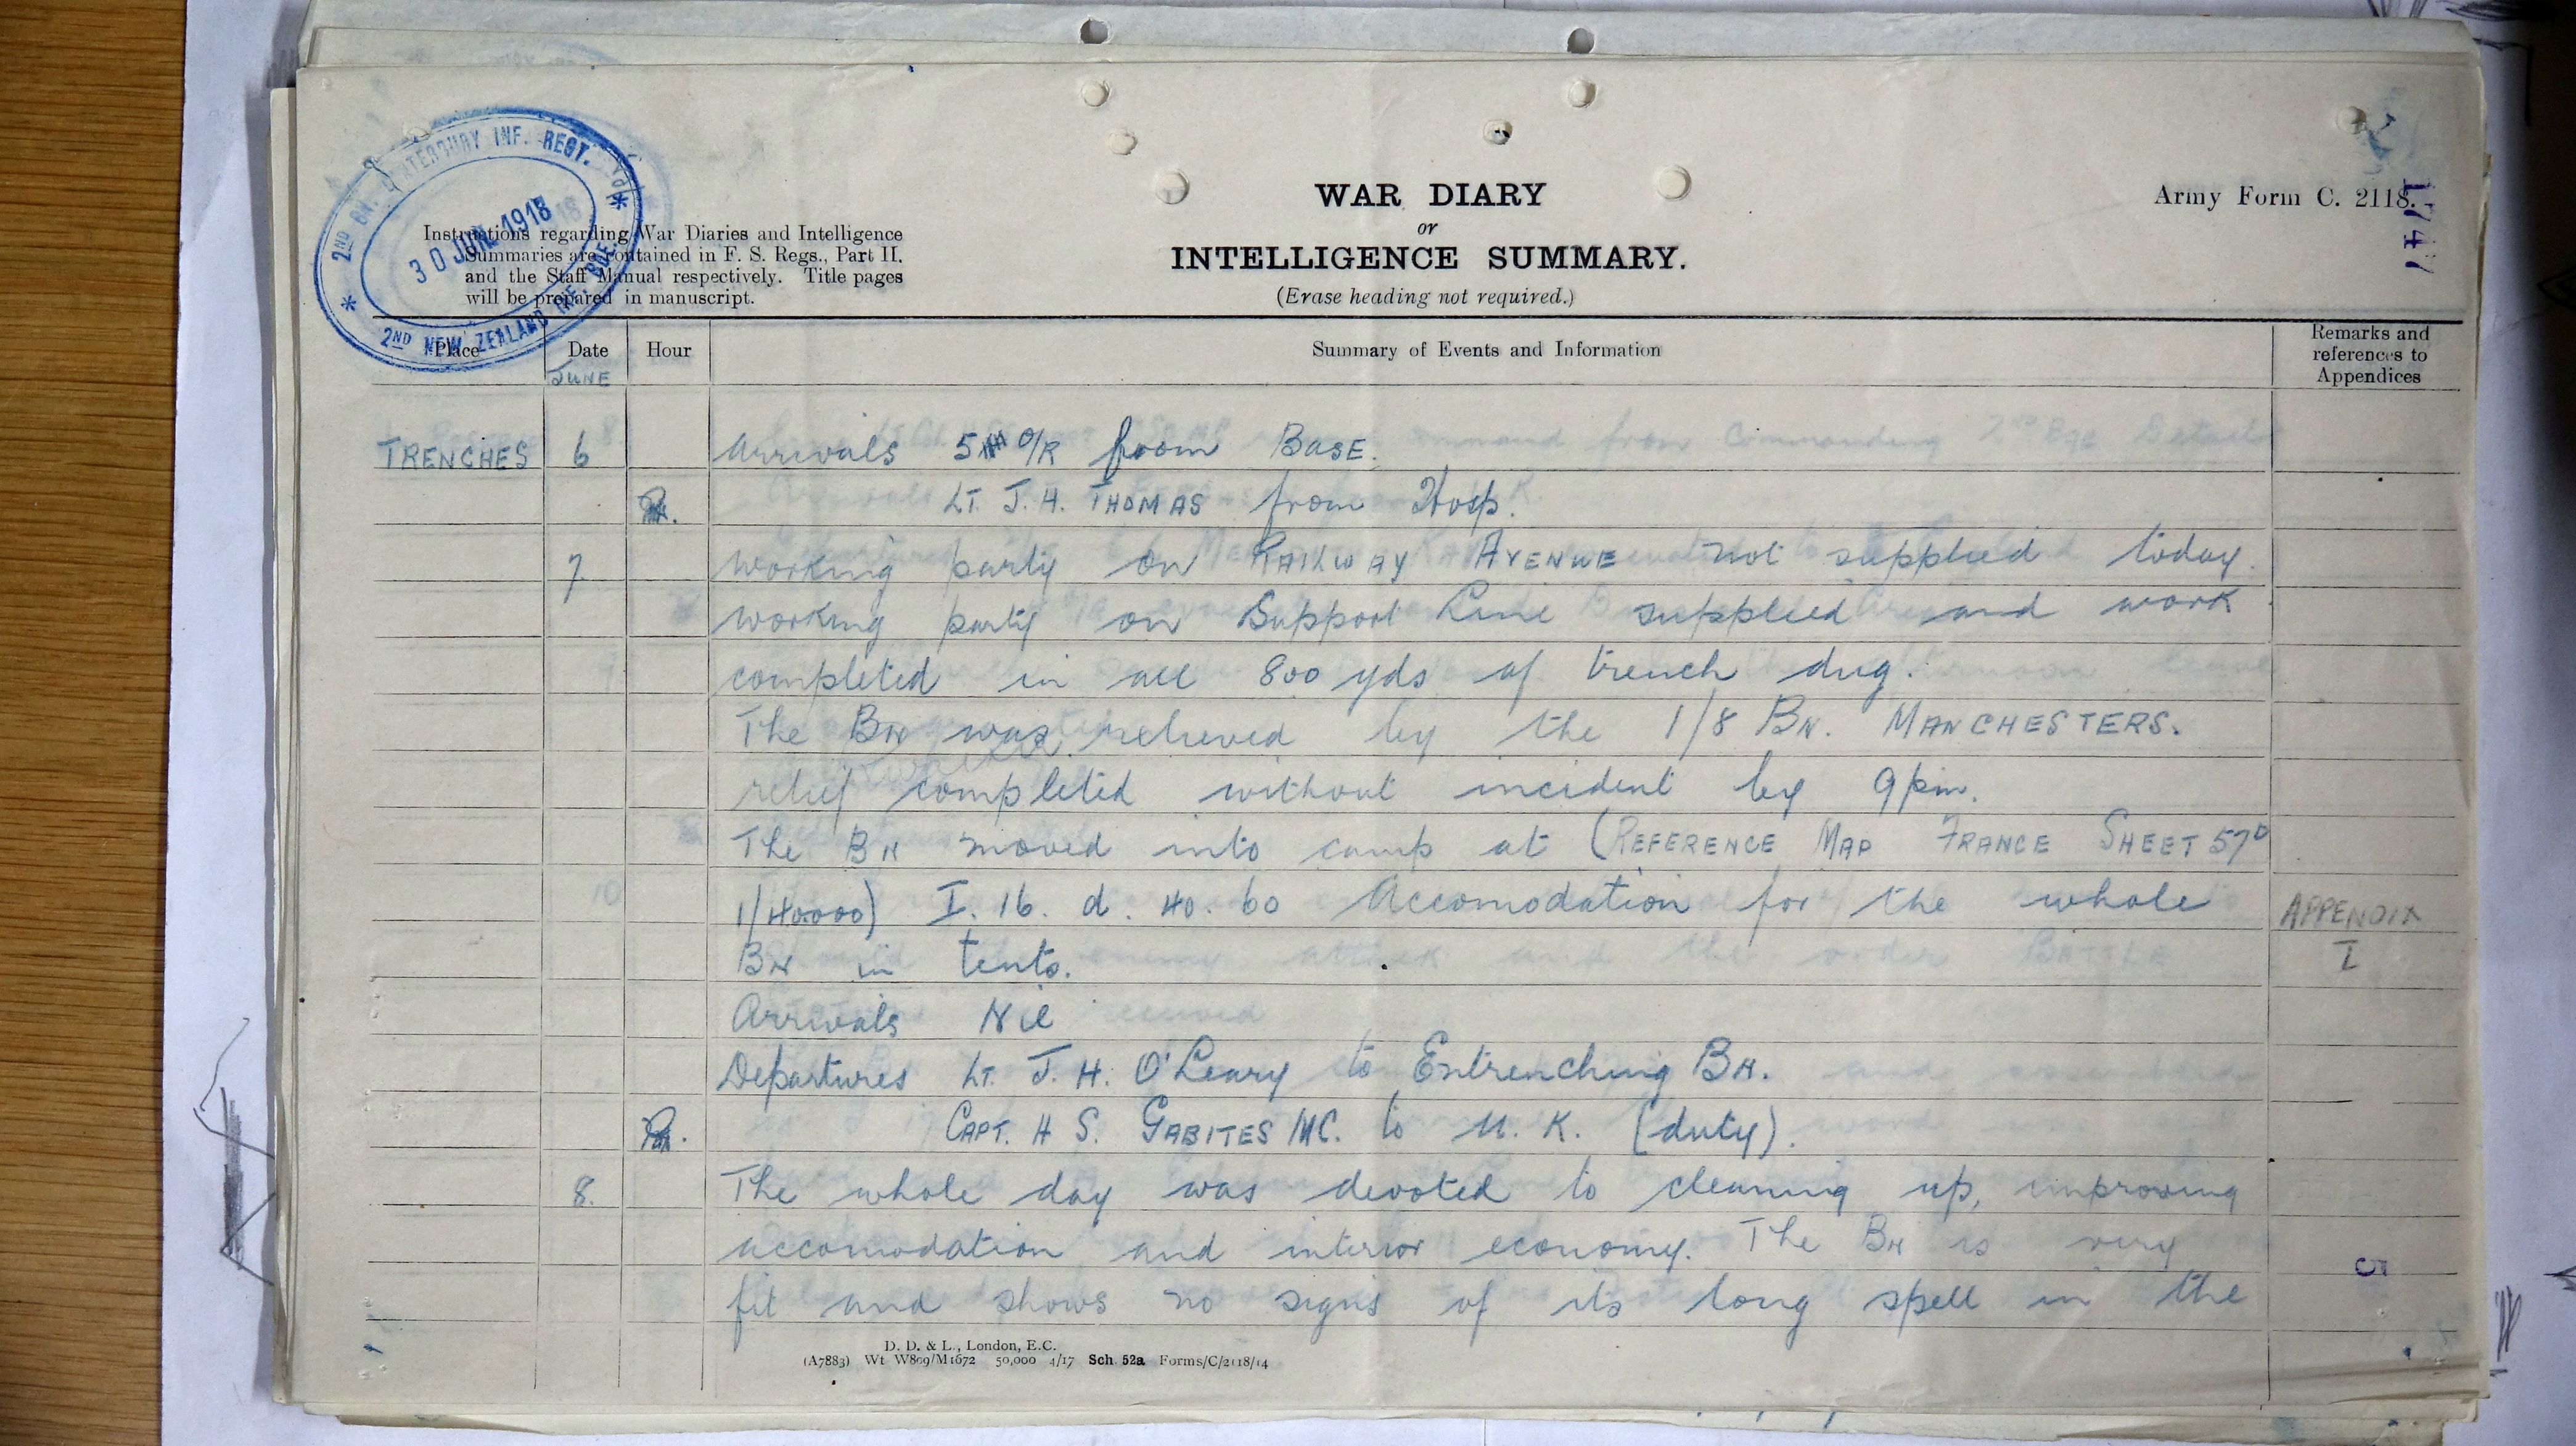 2ND BN. CANTERBURY INF. REGT.
30 JUN. 1918
2ND NEW ZEALAND INF. BDE.
Instructions regarding War Diaries and Intelligence
Summaries are contained in F. S. Regs., Part II.
and the Staff Manual respectively. Title pages
will be prepared in manuscript.
WAR DIARY
or
INTELLIGENCE SUMMARY.
(Erase heading not required.)
Army Form C. 2118.
Place Date Hour Summary of Events and Information Remarks and references to Appendices
JUNE
TRENCHES 6 Arrivals 5 O/R from BASE.
LT. J. H. THOMAS from Hosp.
7. Working party on RAILWAY AVENUE not supplied today.
working party on Support Line supplied and work
completed in all 800 yds of trench dug.
The BN was relieved by the 1/8 BN. MANCHESTERS.
relief completed without incident by 9pm.
The BN moved into camp at (REFERENCE MAP FRANCE SHEET 57D
1/40.000) I. 16. d. 40. 60 Accomodation for the whole APPENDIX
BN in tents. I
Arrivals Nil
Departures LT. J. H. O'Leary to Entrenching BN.
CAPT. H S. GABITES MC. to U. K. (duty).
8. The whole day was devoted to cleaning up, improving
accomodation and interior economy. The BN is very
fit and shows no signs of its long spell in the
5
D. D. & L., London, E.C.
(A7883) Wt W809/M1672 50,000 4/17 Sch. 52a Forms/C/2118/14